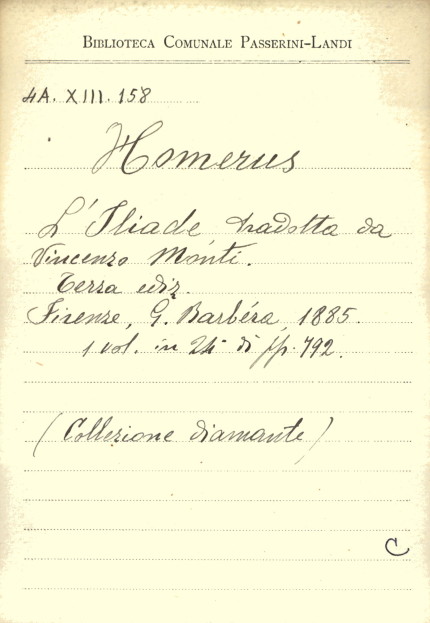 BIBLIOTECA COMUNALE PASSERINI-LANDI
4A. XIII. 158
Homerus
L'Iliade tradotta da
Vincenzo Monti.
Terza ediz.
Firenze, G. Barbéra, 1885.
1 vol. in 24° di pp. 792.
(Collezione diamante)
C